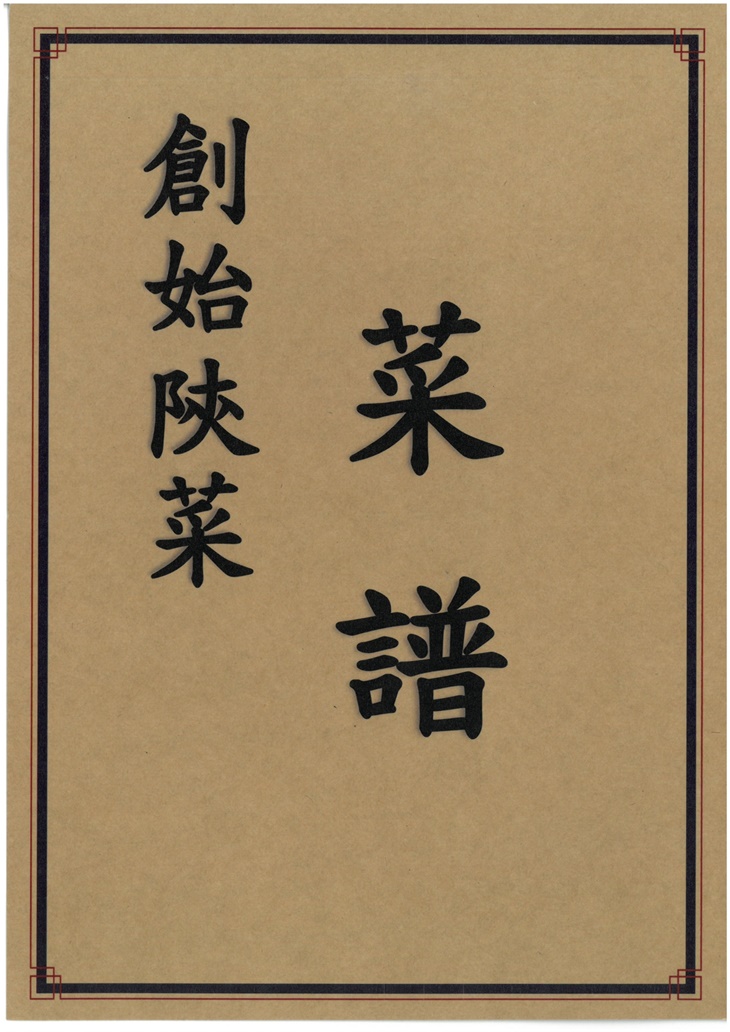 菜譜
創始陝菜